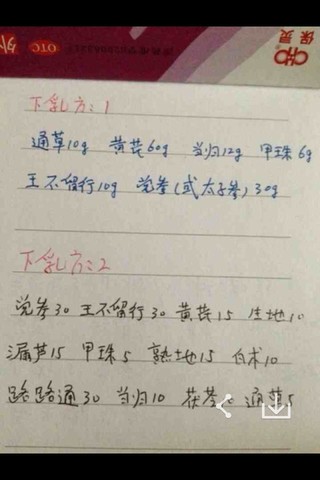 外 OTC
保灵
下乳方:1
通草10g 黄芪60g 当归12g 甲珠6g
王不留行10g 党参(或太子参)30g
下乳方:2
党参30 王不留行30 黄芪15 生地10
漏芦15 甲珠5 熟地15 白术10
路路通30 当归10 茯苓 通草5